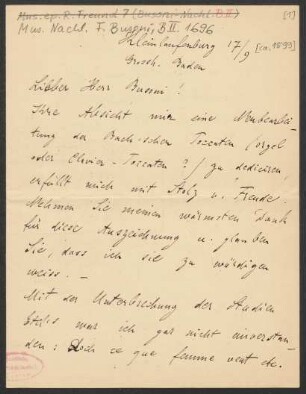 Mus. ep. R. Freund 7 (Busoni-Nachl. B II)
[1]
Mus. Nachl. F. Busoni, B II, 1696
Kleinlaufenburg 17/9 [ca. 1899]
Grossh. Baden
Lieber Herr Busoni!
Ihre Absicht mir eine Neubearbei-
tung der Bach-schen Toccaten (orgel
oder Clavier-Toccaten?) zu dediciren,
erfüllt mich mit Stolz u. Freude.
Nehmen Sie meinen wärmsten Dank
für diese Auszeichnung u. glauben
Sie, dass ich sie zu würdigen
weiss. —
Mit der Unterbrechung der Studien
war ich gar nicht einverstan-
den: Doch ce que femme veut etc.